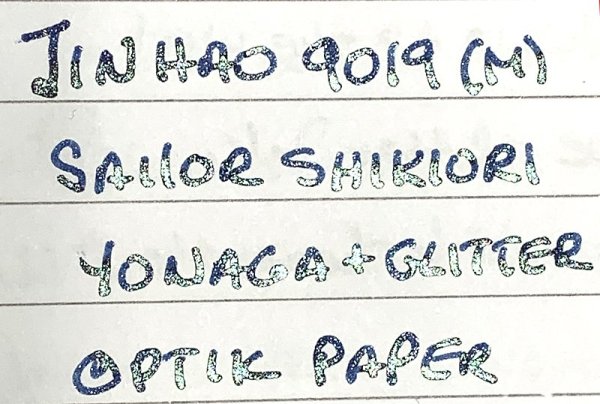 JINHAO 9019 (M)
SAILOR SHIKIORI
YONAGA + GLITTER
OPTIK PAPER